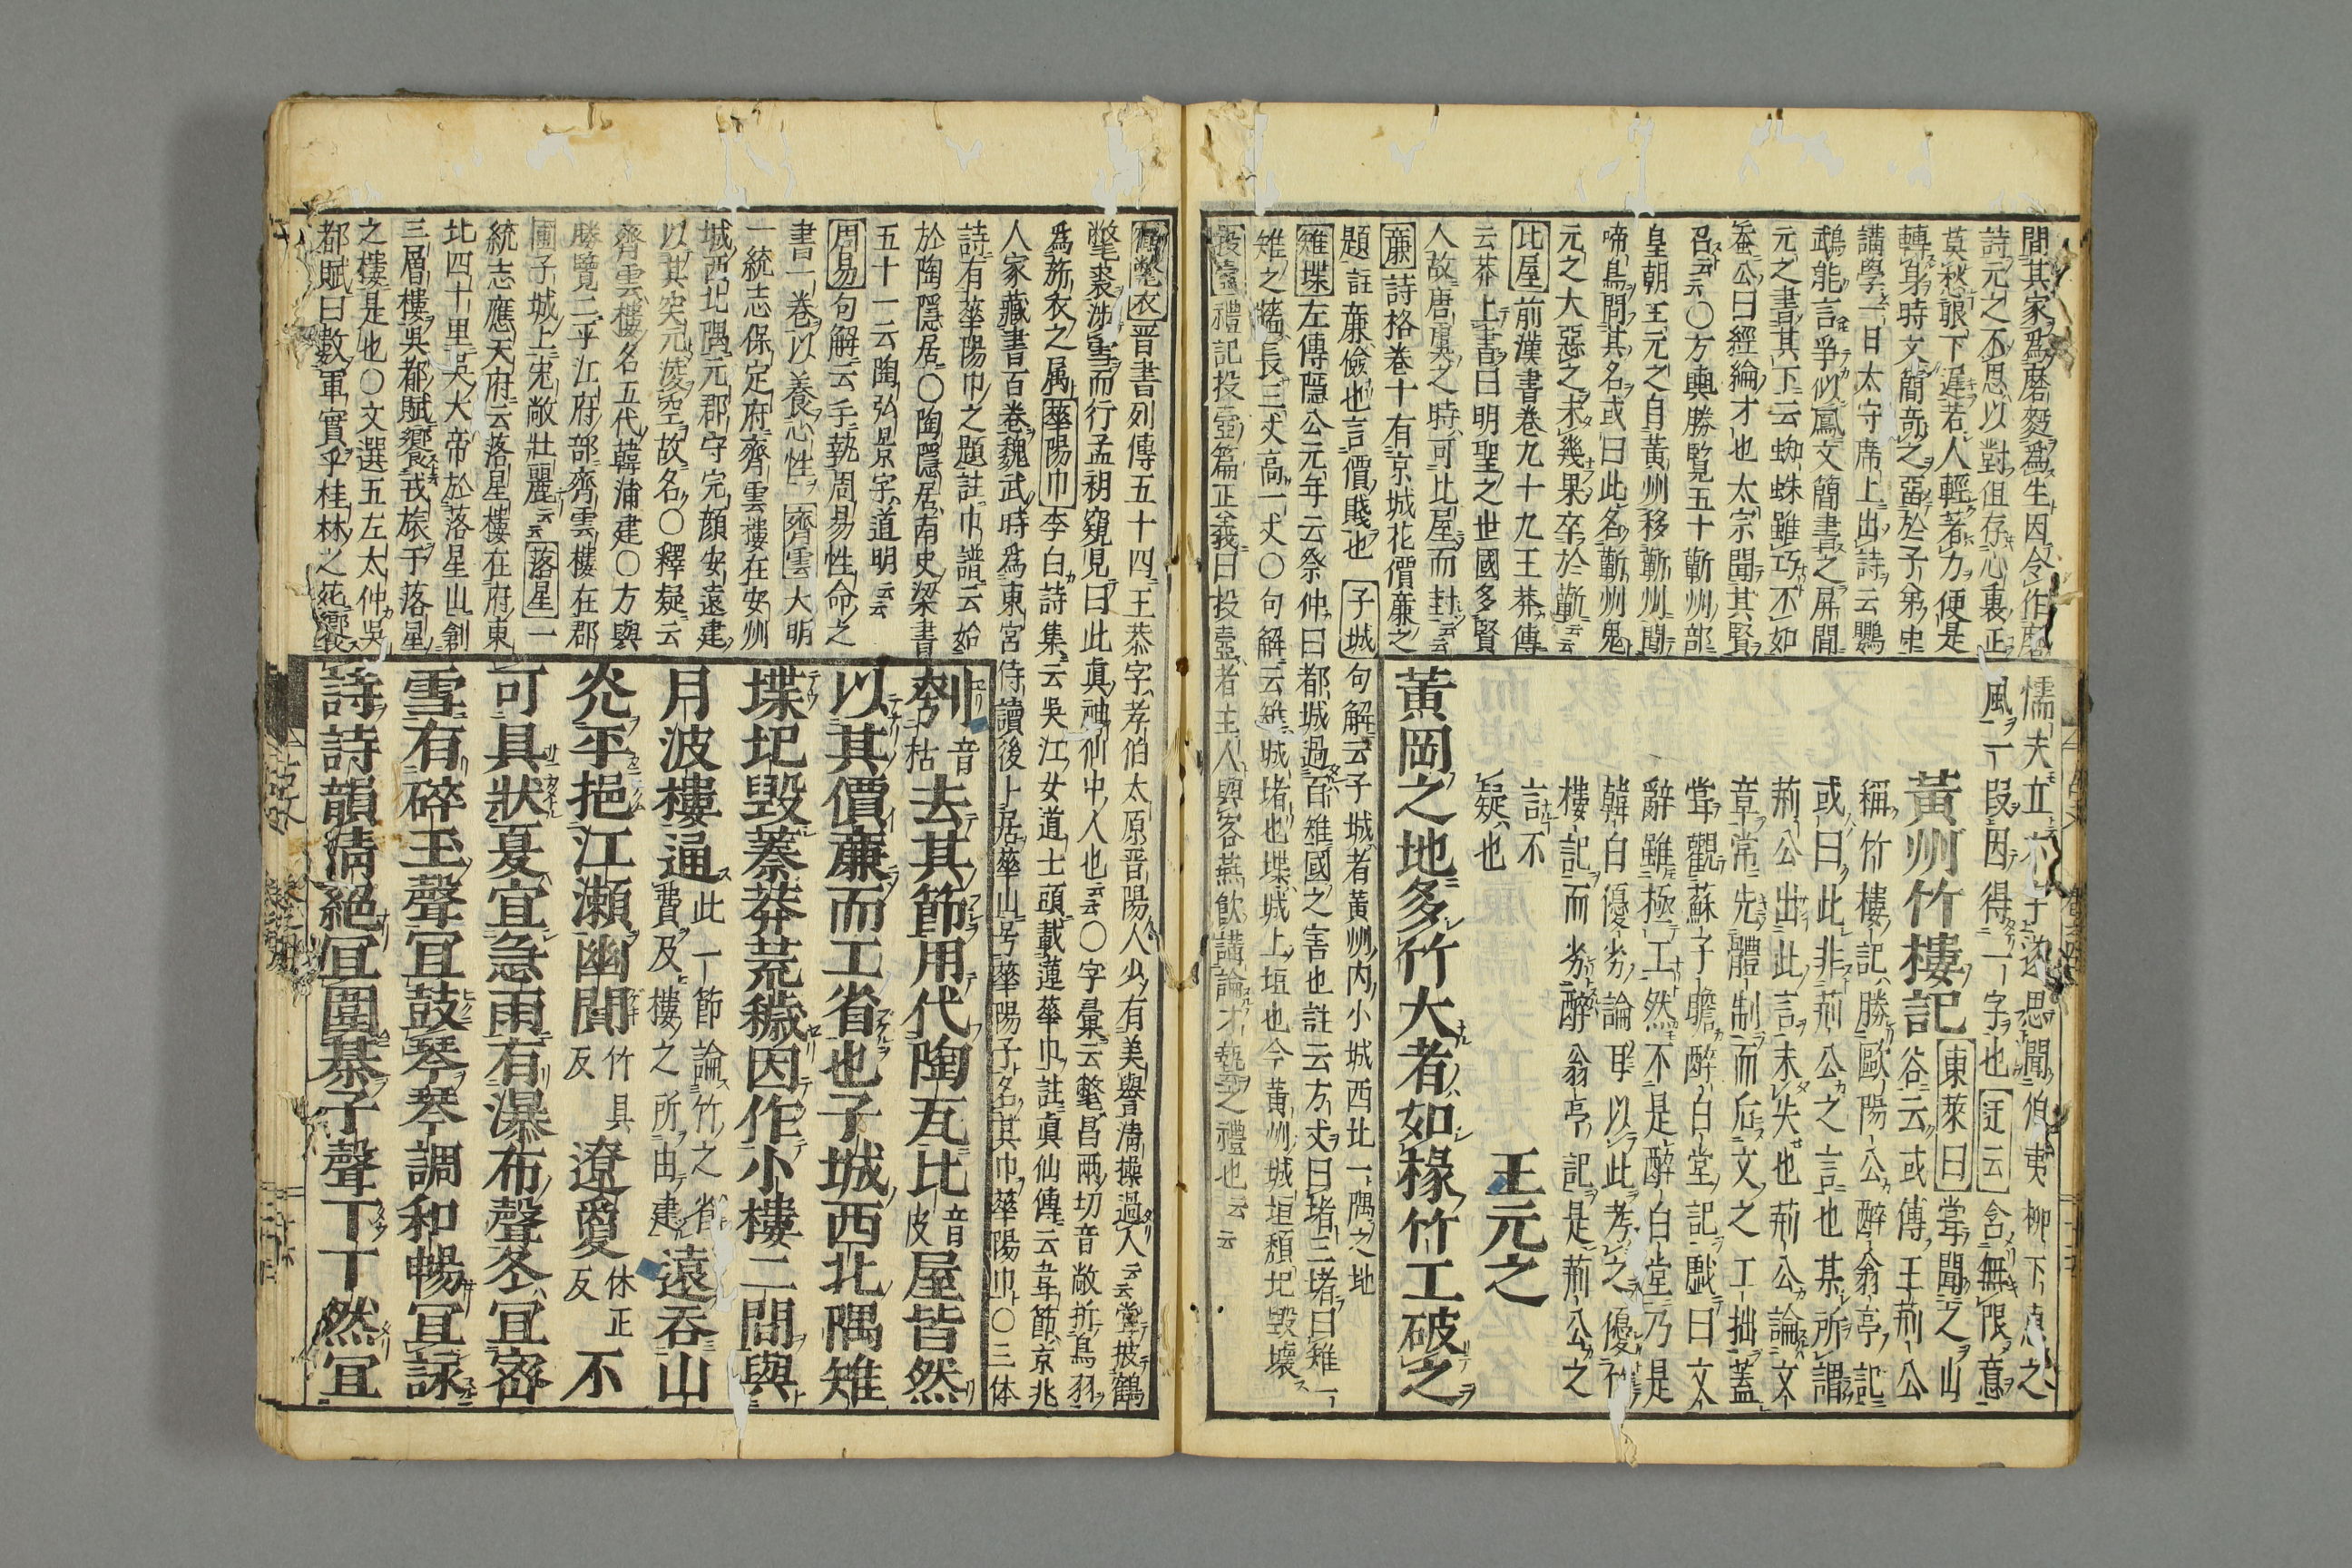 間其家爲磨麪爲生因令作磨
詩元之不思以對但存心裏正
莫愁眼下遲若人輕著力便是
轉身時文簡奇之留於子弟中
講學一日太守席上出詩云鸚
鵡能言爭似鳳文簡書之屏間
元之書其下云蜘蛛雖巧不如
蚕公曰經綸才也太宗聞其賢
召云云〇方輿勝覧五十蘄州部
皇朝王元之自黃州移蘄州聞
啼鳥問其名或曰此名蘄州鬼
元之大惡之未幾果卒於蘄云云
比屋前漢書卷九十九王莽傳
云莽上書曰明聖之世國多賢
人故唐虞之時可比屋而封云云
廉詩格卷十有京城花價廉之
題註廉儉也言價賤也子城句解云子城者黃州內小城西北一隅之地
雉堞左傳隱公元年云祭仲曰都城過百雉國之害也註云方丈曰堵三堵曰雉一
雉之墻長三丈高一丈〇句解云雉城堵也堞城上垣也今黃州城垣頹圮毀壞
投壺禮記投壺篇正義曰投壺者主人與客燕飮講論才藝之禮也云云
懦夫立
思聞伯夷柳下惠之
風一叚因得一字也迂云含無限意
黃州竹樓記東萊曰嘗聞之山
谷云或傳王荊公
稱竹樓記勝歐陽公醉翁亭記
或曰此非荊公之言也某所謂
荊公出此言未失也荊公論文
章常先體制而后文之工拙蓋
嘗觀蘇子瞻醉白堂記戲曰文
辭雖極工然不是醉白堂乃是
韓白優劣論耳以此考之優竹
樓記而劣醉翁亭記是荊公之
言不
疑也
王元之
黃岡之地多竹大者如椽竹工破之
鶴氅衣晋書列傳五十四王恭字孝伯太原晋陽人少有美譽清操過人云云嘗披鶴
氅裘渉雪而行孟昶窺見曰此眞神仙中人也云云〇字彙云氅昌兩切音敞折鳥羽
爲旅衣之属華陽巾李白詩集云吳江女道士頭戴蓮華巾註眞仙傳云韋節京兆
人家藏書百卷魏武時爲東宮侍讀後卜居華山号華陽子名其巾華陽巾〇三体
詩有華陽巾之題註巾譜云始
於陶隱居〇陶隱居南史梁書
五十一云陶弘景字道明云云
周易句解云手執周易性命之
書一卷以養心性齊雲大明
一統志保定府齊雲樓在安州
城西北隅元郡守完顔安遠建
以其突兀凌空故名〇釋疑云
齊雲樓名五代韓浦建〇方輿
勝覽二平江府部齊雲樓在郡
圃子城上宏敞壯麗云云落星一
統志應天府云落星樓在府東
北四十里吳大帝於落星山創
三層樓吳都賦饗戎旅于落星
之樓是也〇文選五左太仲吳
都賦曰數軍實乎桂林之苑饗
刳音枯去其節用代陶瓦比音皮屋皆然
以其價廉而工省也子城西北隅雉
堞圮毀蓁莽荒穢因作小樓二間與
月波樓通此一節論竹之省費及樓之所由建遠吞山
光平挹江瀬幽闃竹具反遼夐休正反不
可具狀夏宜急雨有瀑布聲冬宜密
雪有碎玉聲宜鼓琴琴調和暢宜詠
詩詩韻清絕宜圍棊子聲丁丁然宜